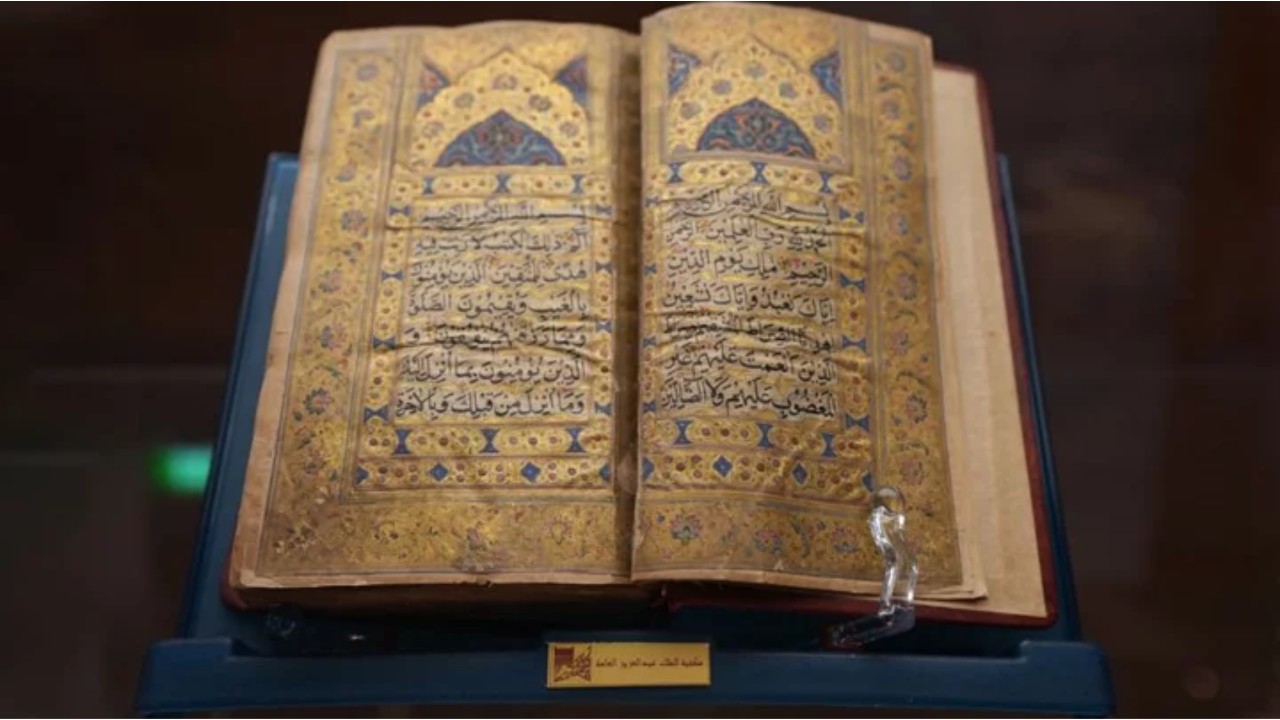 بِسْمِ اللَّهِ الرَّحْمَنِ الرَّحِيمِ
الْحَمْدُ لِلَّهِ رَبِّ الْعَلَمِينَ الرَّحْمَنِ
الرَّحِيمِ مَلِكِ يَوْمِ الدِّينِ
إِيَّاكَ نَعْبُدُ وَإِيَّاكَ نَسْتَعِينُ
اهْدِنَا الصِّرَاطَ الْمُسْتَقِيمَ صِرَاطَ
الَّذِينَ أَنْعَمْتَ عَلَيْهِمْ غَيْرِ
الْمَغْضُوبِ عَلَيْهِمْ وَلَا الضَّالِّينَ
بِسْمِ اللَّهِ الرَّحْمَنِ الرَّحِيمِ
الم ذَلِكَ الْكِتَبُ لَا رَيْبَ فِيهِ
هُدًى لِلْمُتَّقِينَ الَّذِينَ يُؤْمِنُونَ
بِالْغَيْبِ وَيُقِيمُونَ الصَّلَوةَ
وَمِمَّا رَزَقْنَهُمْ يُنْفِقُونَ وَ
الَّذِينَ يُؤْمِنُونَ بِمَا أُنْزِلَ إِلَيْكَ
وَمَا أُنْزِلَ مِنْ قَبْلِكَ وَبِالْآخِرَةِ
مكتبة الملك عبدالعزيز العامة